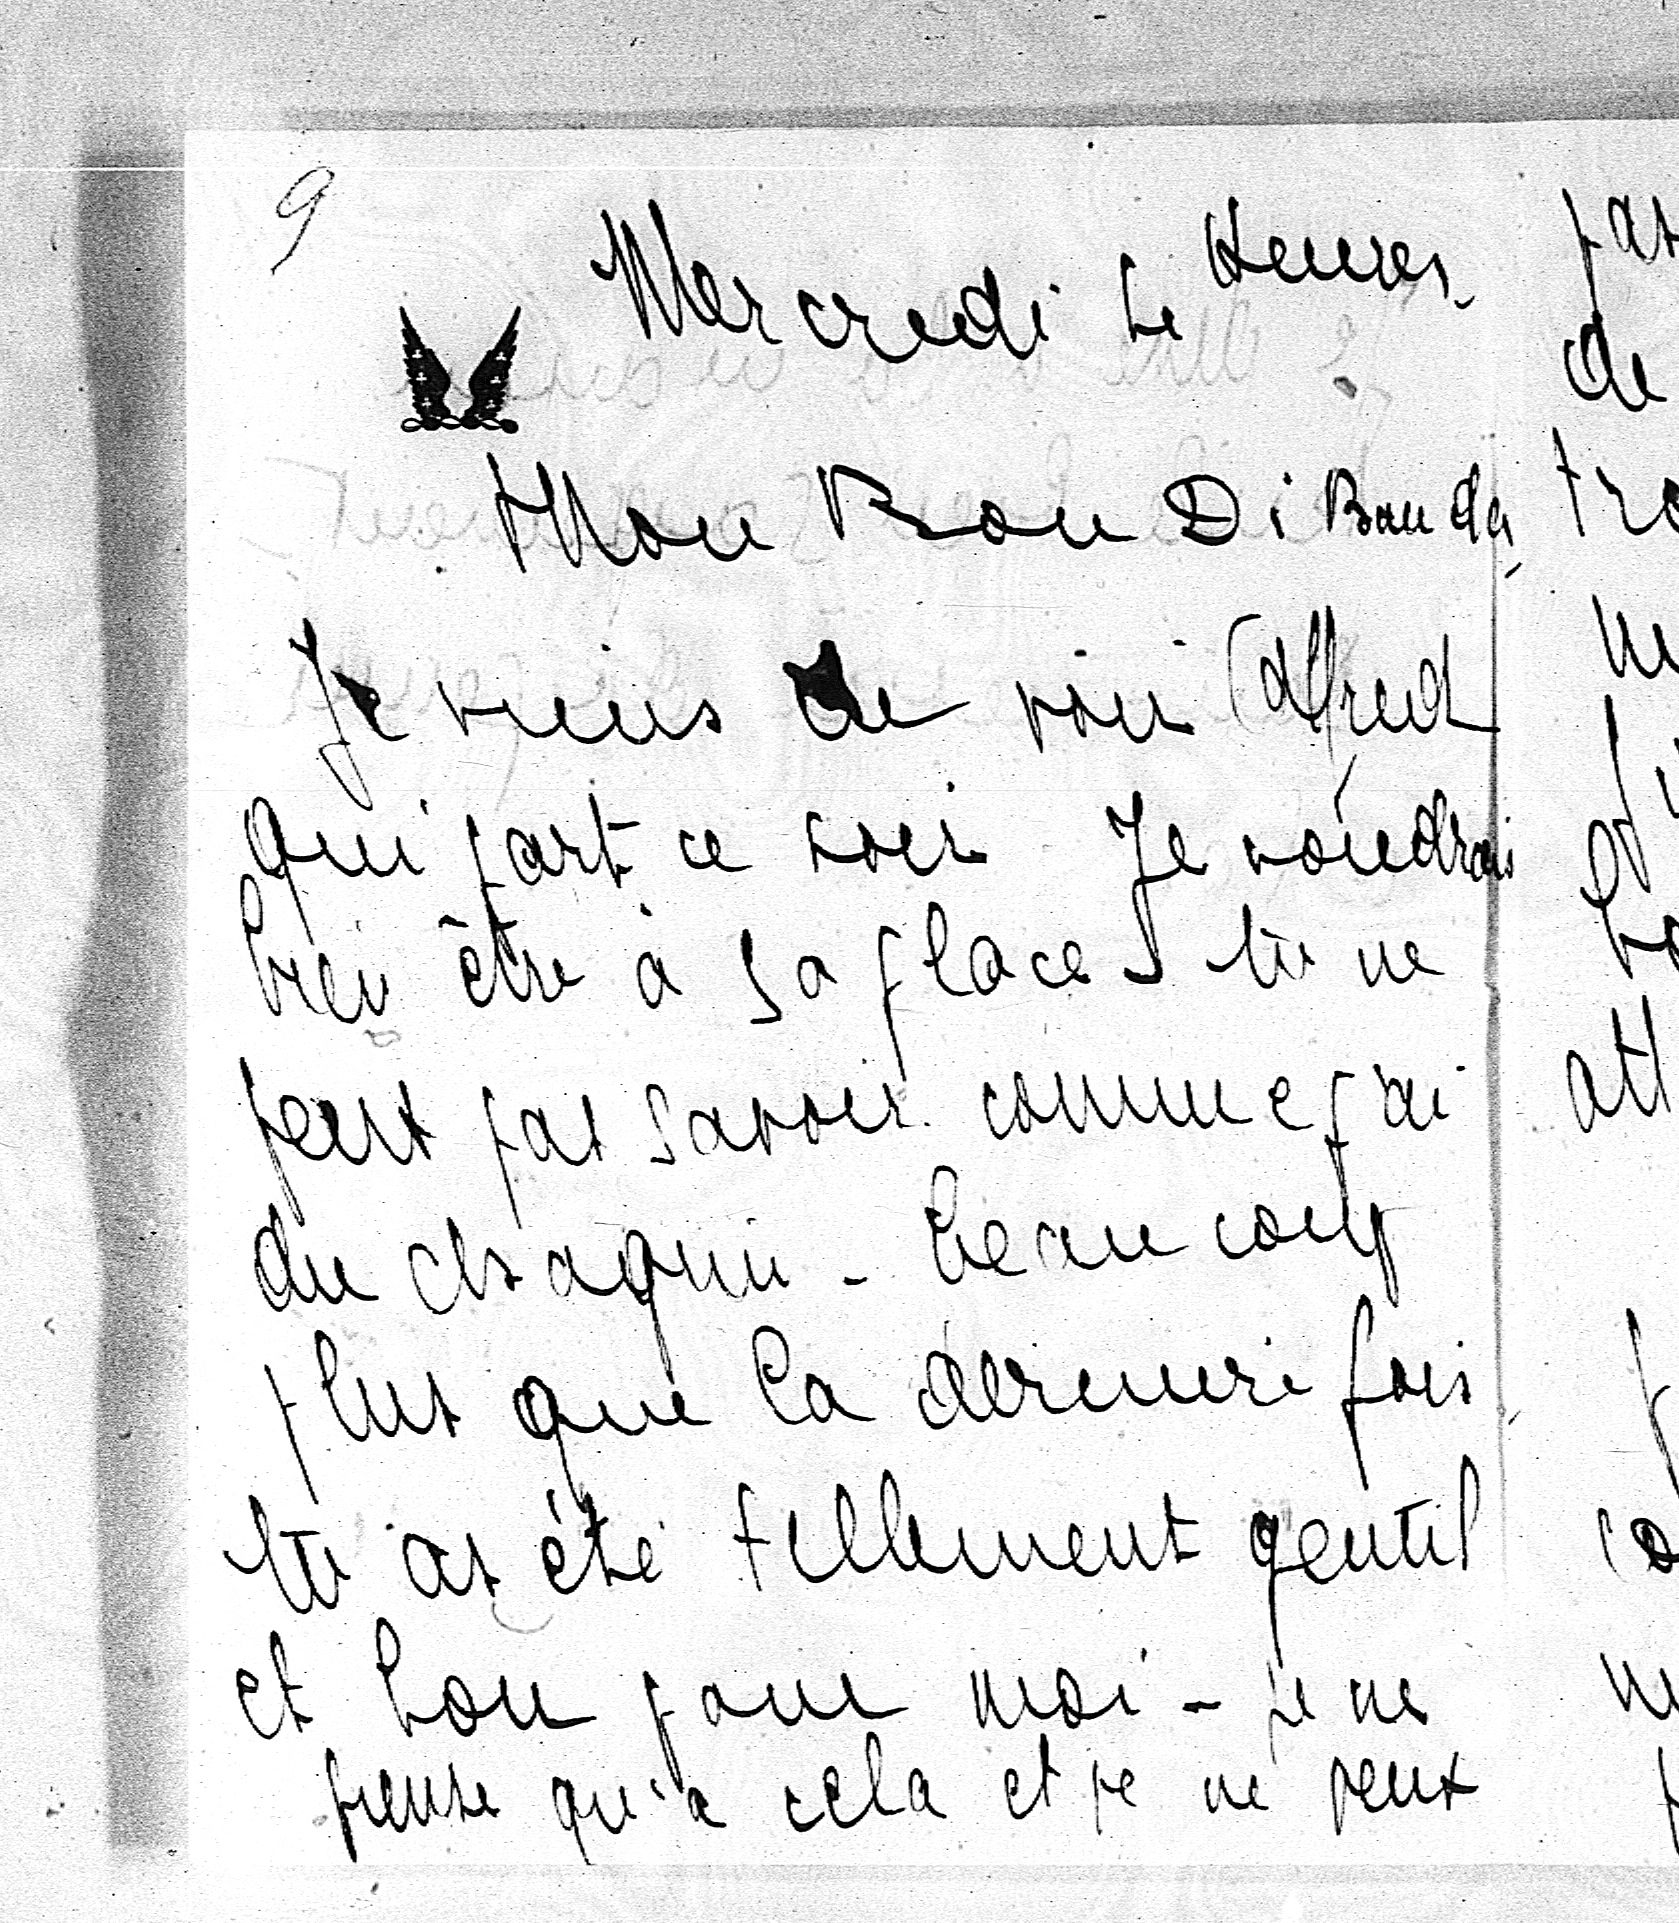 9
Mercredi Heures
Mon Bon Di Banda
Je viens de voir Alfred
qui part ce soir Je voudrais
bien être à sa place tu ne
peux pas savoir comme j'ai
du chagrin - beaucoup
plus que la derniere fois
tu as été tellement gentil
et bon pour moi - je ne
pense qu'à cela et je ne peux
pas
de